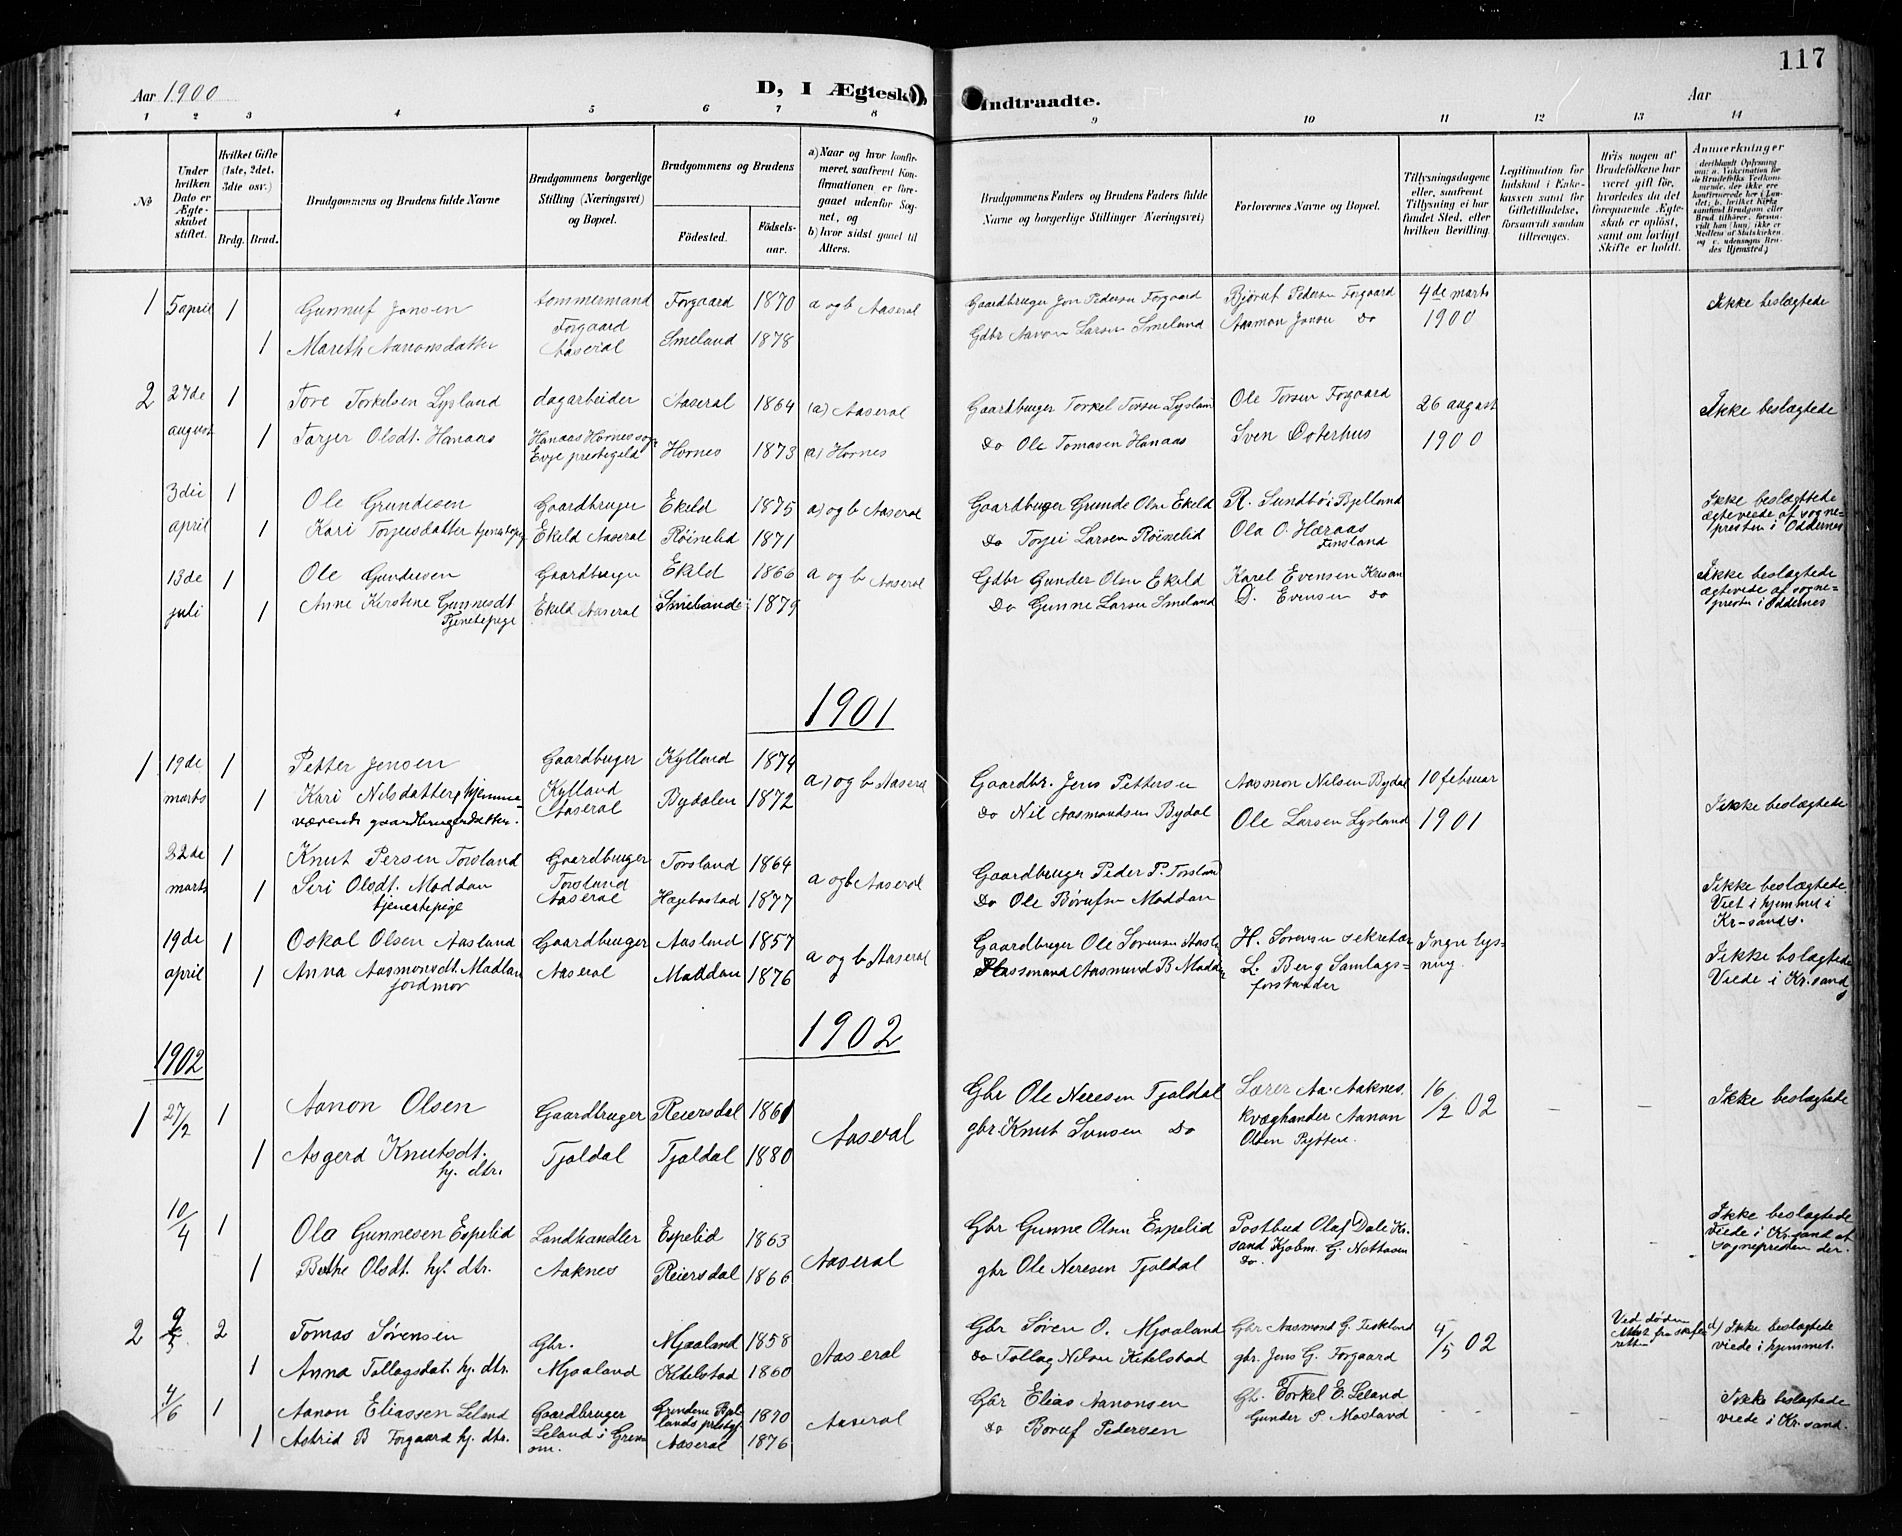 117
Aar 1900
D, I Ægtesk
Indtraadte.
Aar
1 2 3 4 5 6 7 8 9 10 11 12 13 14
No
Under hvilken Dato er Ægteskabet stiftet.
Hvilket Gifte (1ste, 2det, 3die osv.)
Brdg. Brud.
Brudgommens og Brudens fulde Navne
Brudgommens borgerlige Stilling (Næringsvei) og Bopæl.
Brudgommens og Brudens
Fødested.
Fødselsaar.
a) Naar og hvor konfirmeret, saafremt Konfirmationen er foregaaet udenfor Sognet, og
b) hvor sidst gaaet til Alters.
Brudgommens Faders og Brudens Faders fulde Navne og borgerlige Stillinger (Næringsvei)
Forlovernes Navne og Bopæl.
Tillysningsdagene eller, saafremt Tillysning ei har fundet Sted, efter hvilken Bevilling.
Legitimation for Indskud i Enkekassen samt for Giftetilladelse, forsaavidt saadan tiltrænges.
Hvis nogen af Brudefolkene har været gift før, hvorledes da det foregaaende Ægteskab er opløst, samt om lovligt Skifte er holdt.
Anmerkninger
1 5 april 1 Gunnuf Jonsen tømmermand Forgaard 1870 a og b Aaseral Gaardbruger Jon Pedersen Forgaard Bjoruf Pedersen Forgaard 4de marts Ikke beslægtede
1 Mareth Aanonsdatter Forgaard Aaseral Smeland 1878 Gdbr Aanon Larsen Smeland Aasmon Jonsen Do 1900
2 27de august 1 Tore Torkelsen Lysland dagarbeider Aaseral 1864 (a) Aaseral Gaardbruger Torkel Torsen Lysland Ole Torsen Forgaard 26 august Ikke beslægtede
1 Tarjer Olsdt. Hanaas Hanaas Hornes sogn Evje prestegeld Hornes 1873 (a) Hornes Do Ole Tomasen Hanaas Sven Osterhus 1900
3die april 1 Ole Gundersen Gaardbruger Ekeld 1875 a) og b Aaseral Gaardbruger Grunde Olsen Ekeld R. Sundbø i Bjelland Ikke beslægtede ægteviede af sognepresten i Oddernes
1 Kari Torjusdatter tjenestepige Ekeld Aaseral Röinelid 1871 Do Torjei Larsen Röinelid Ola O. Hæraas Finsland
13de juli 1 Ole Gundersen Gaardbruger Ekeld 1866 a og b Aaseral Gdbr Gunder Olsen Ekeld Karel Evensen Krisan Ikke beslægtede ægteviede af sognepresten i Oddernes
1 Anne Kirstine Gunnesdt Tjenestepige Ekeld Aaseral Smeland 1879 Do Gunne Larsen Smeland D. Evensen Do
1901
1 19de marts 1 Petter Jensen Gaardbruger Kylland 1874 a) og b Aaseral Gaardbr. Jens Pettersen Aasmon Nilsen Bydal 10 februar Ikke beslægtede
1 Kari Nilsdatter hjemmeværende gaardbrugerdatter. Kylland Aaseral Bydalen 1872 Do Nil Aasmundsen Bydal Ole Larsen Lysland 1901
22de marts 1 Knut Persen Torsland Gaardbruger Torsland 1864 a og b Aaseral Gaardbruger Peder P. Torsland Ikke beslægtede Viet i hjemmet i Kr-sands.
1 Siri Olsdt. Moddan tjenestepige Torsland Aaseral Hægebostad 1877 Do Ole Börufsen Moddan
19de april 1 Oskal Olsen Aasland Gaardbruger Aasland 1857 a og b Aaseral Gaardbruger Ole Sorensen Aasl H. Sorensen sekretær Ingen lysning. Ikke beslægtede Viede i Kr.sand
1 Anna Aasmonsdt. Modlan jordmor Aaseral Moddan 1876 Plassmand Aasmund B Moddan L. Berg Samlagsforstander
1902
1902
1 27/2 1 Aanon Olsen Gaardbruger Reiersdal 1861 Aaseral Gbr Ole Neresen Tjaldal Lærer Aa. Aaknes, 16/2 02 – – Ikke beslægtede
1 Asgerd Knutsdt. hj. dtr. Tjaldal Tjaldal 1880 gbr. Knut Svensen Do kvæghander Aanon Olsen Rytten.
10/4 1 Ola Gunnesen Espelid Landhandler Espelid 1863 Aaseral Gbr Gunne Olsen Espelid Postbud Olaf Dale Kr. sand Kjobm. G. Nottosen Do. Ikke beslægtede viede i Kr.sand af sognepresten der.
1 Berthe Olsdt. hj. dtr. Aaknes Reiersdal 1866 gbr Ole Neresen Tjaldal
2 9/5 2 Tomas Sørensen Gbr. Mjaaland 1858 Aaseral Gbr Søren O. Mjaaland Gbr Aasmond G. Fiskland 4/5 02 Ved døden Attest fra skifteretten d) Ikke beslægtede viede i hjemmet.
1 Anna Tallagsdat. hj. dtr. Mjaaland Kitelstad 1860 Do Tollag Nilsen Kitelstad gbr. Jens G. Forgaard
4/6 1 Aanon Eliassen Leland Gaardbruger Grindem Bjellands prestgj 1870 Aaseral Gbr Elias Aanonsen Gb. Torkel E. Leland – – – Ikke beslægtede viede i Kr.sand.
1 Astrid B Forgaard hj. dtr. Leland i Grendom. Aaseral 1876 Do Boruf Pedersen Gunder P Mosland